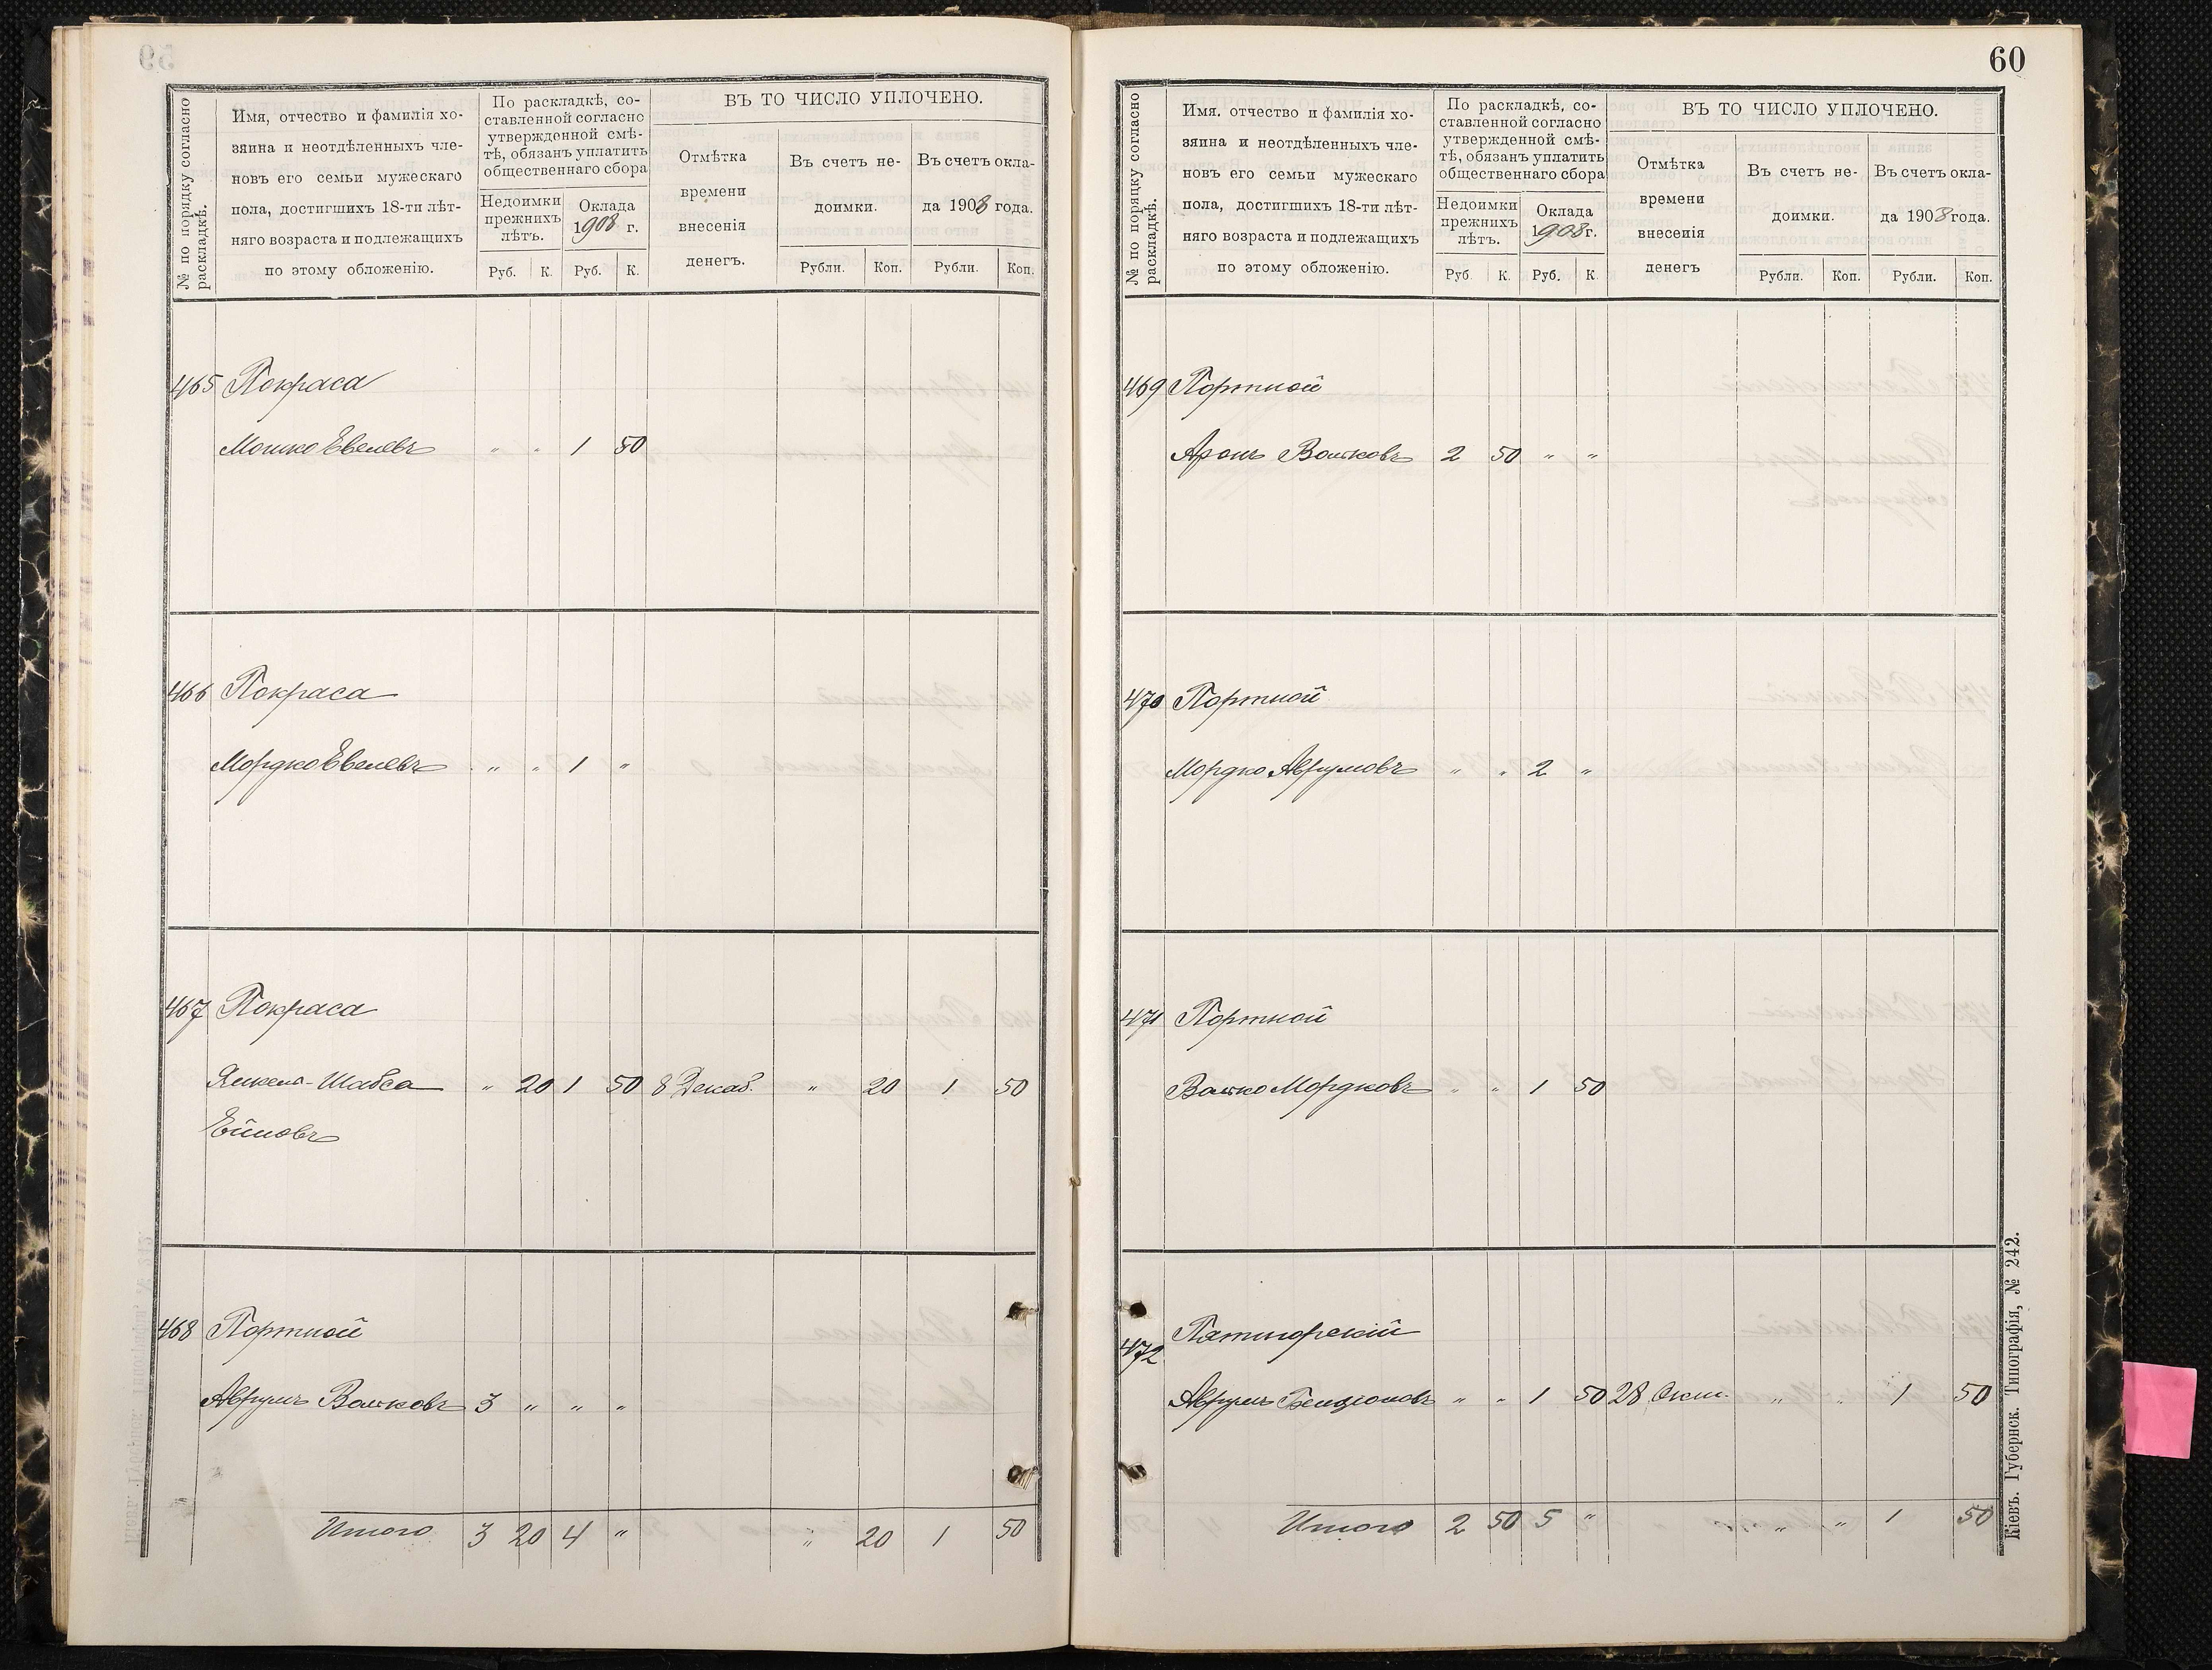 № по порядку согласно раскладкѣ.
Имя, отчество и фамилія хо-
зяина и неотдѣленныхъ чле-
новъ его семьи мужескаго
пола, достигшихъ 18-ти лѣт-
няго возраста и подлежащихъ
по этому обложенію.
По раскладкѣ, со-
ставленной согласно
утвержденной смѣ-
тѣ, обязанъ уплатить
общественнаго сбора
Недоимки прежнихъ лѣтъ.
Оклада 1908 г.
Руб. К. Руб. К.
ВЪ ТО ЧИСЛО УПЛОЧЕНО.
Отмѣтка времени внесенія денегъ.
Въ счетъ не-доимки.
Въ счетъ окла-да 1908 года.
Рубли. Коп. Рубли. Коп.
465 Покраса
Мошко Евелевъ " " 1 50
466 Покраса
Мордко Евелевъ " " 1 "
467 Покраса
Янкель-Шабса " 20 1 50 8 Декаб. " 20 1 50
Ейновъ
468 Портной
Аврумъ Волковъ 3 " " "
Итого 3 20 4 " " 20 1 50
60
№ по порядку согласно раскладкѣ.
Имя. отчество и фамилія хо-
зяина и неотдѣленныхъ чле-
новъ его семьи мужескаго
пола, достигшихъ 18-ти лѣт-
няго возраста и подлежащихъ
по этому обложенію.
По раскладкѣ, со-
ставленной согласно
утвержденной смѣ-
тѣ, обязанъ уплатить
общественнаго сбора
Недоимки прежнихъ лѣтъ.
Оклада 1908 г.
Руб. К. Руб. К.
ВЪ ТО ЧИСЛО УПЛОЧЕНО.
Отмѣтка времени внесенія денегъ
Въ счетъ не-доимки.
Въ счетъ окла-да 1908 года.
Рубли. Коп. Рубли. Коп.
469 Портной
Аронъ Волковъ 2 50 " "
470 Портной
Мордко Аврумовъ " " 2 "
471 Портной
Волко Мордковъ " " 1 50
472 Пятигорскій
Аврумъ Бенціоновъ " " 1 50 28 Окт. " " 1 50
Итого 2 50 5 " " " 1 50
Кіевъ. Губернск. Типографія, № 242.